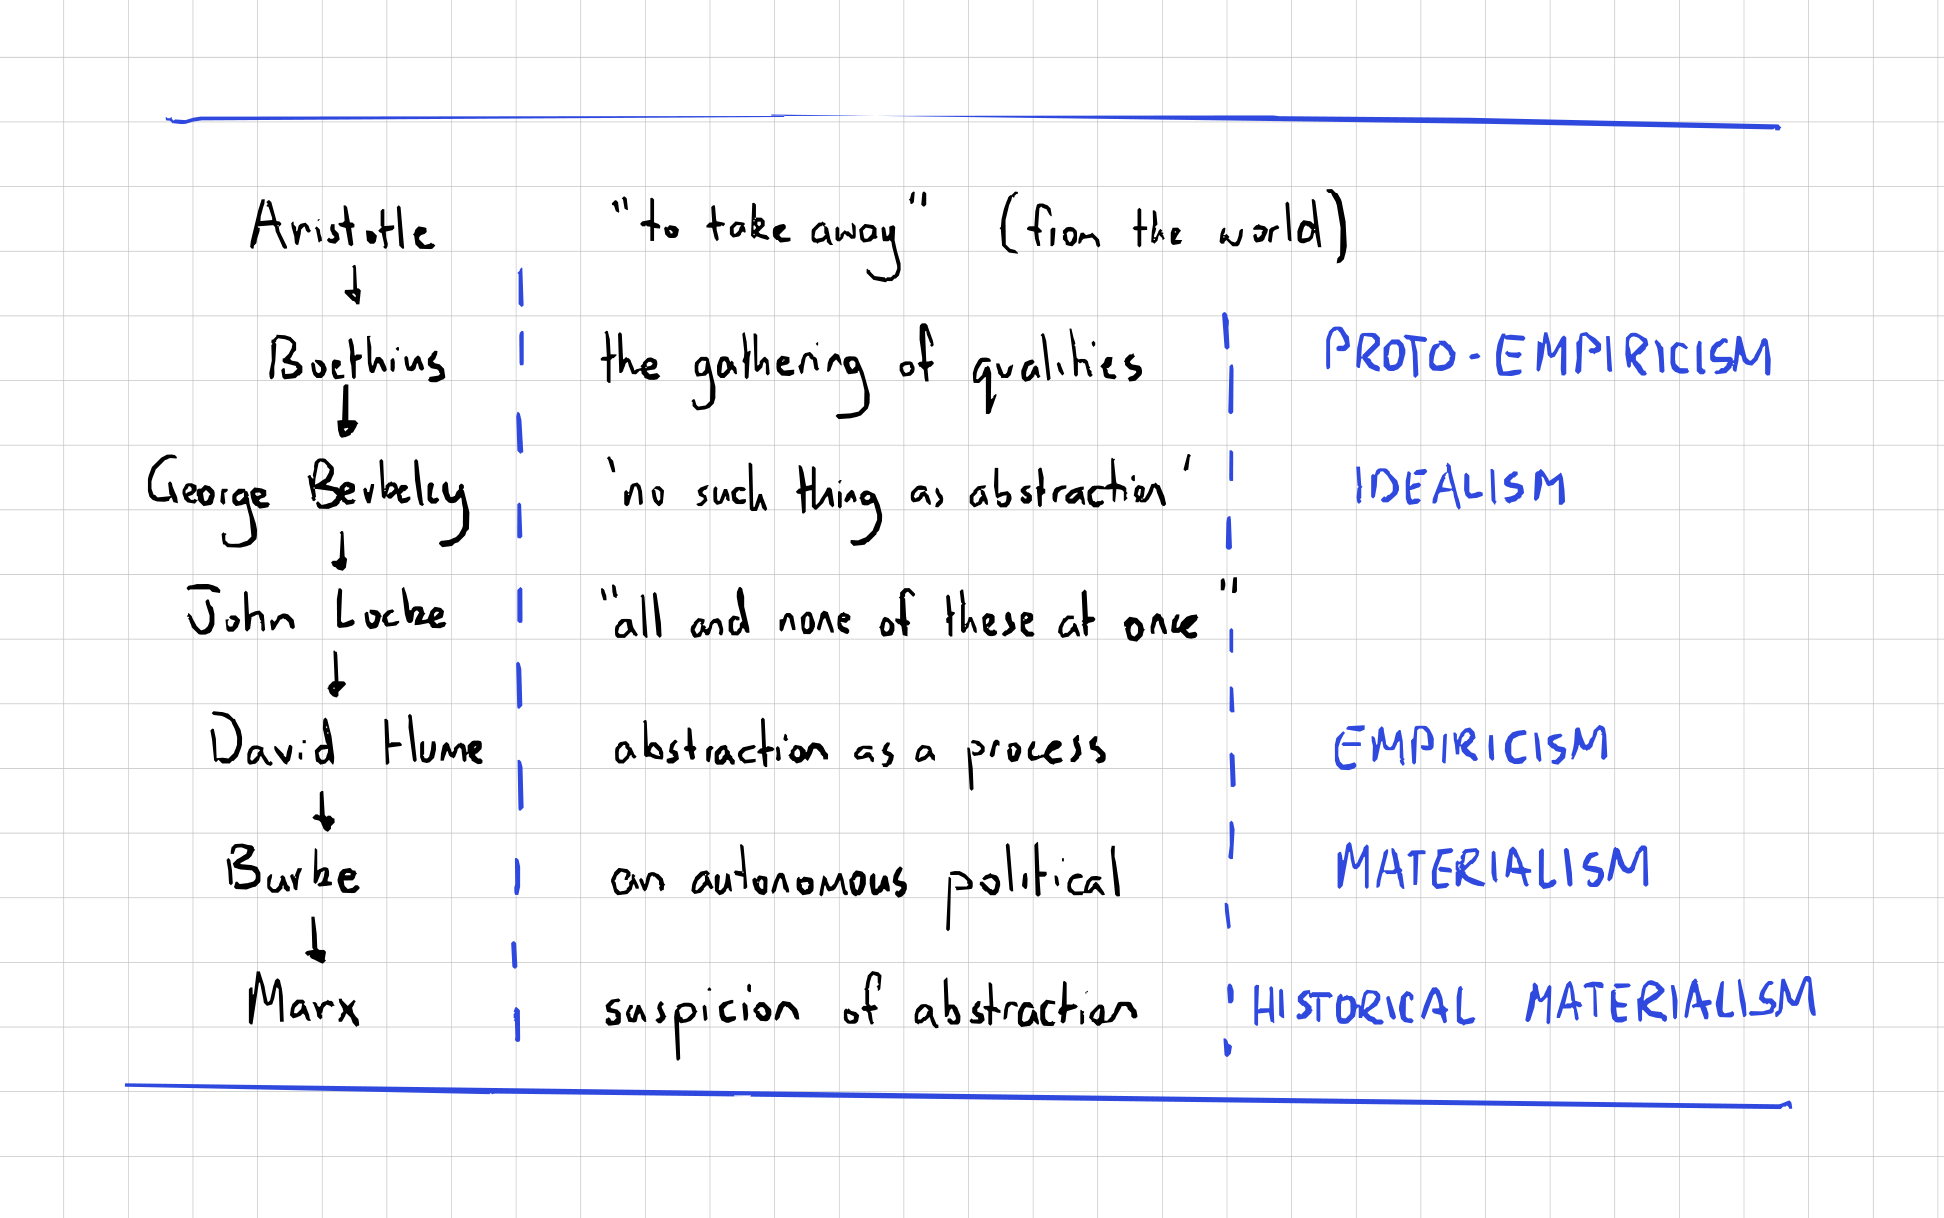 Aristotle "to take away" (from the world)
Boethius the gathering of qualities PROTO-EMPIRICISM
George Berkeley 'no such thing as abstraction' IDEALISM
John Locke "all and none of these at once"
David Hume abstraction as a process EMPIRICISM
Burke an autonomous political MATERIALISM
Marx suspicion of abstraction HISTORICAL MATERIALISM